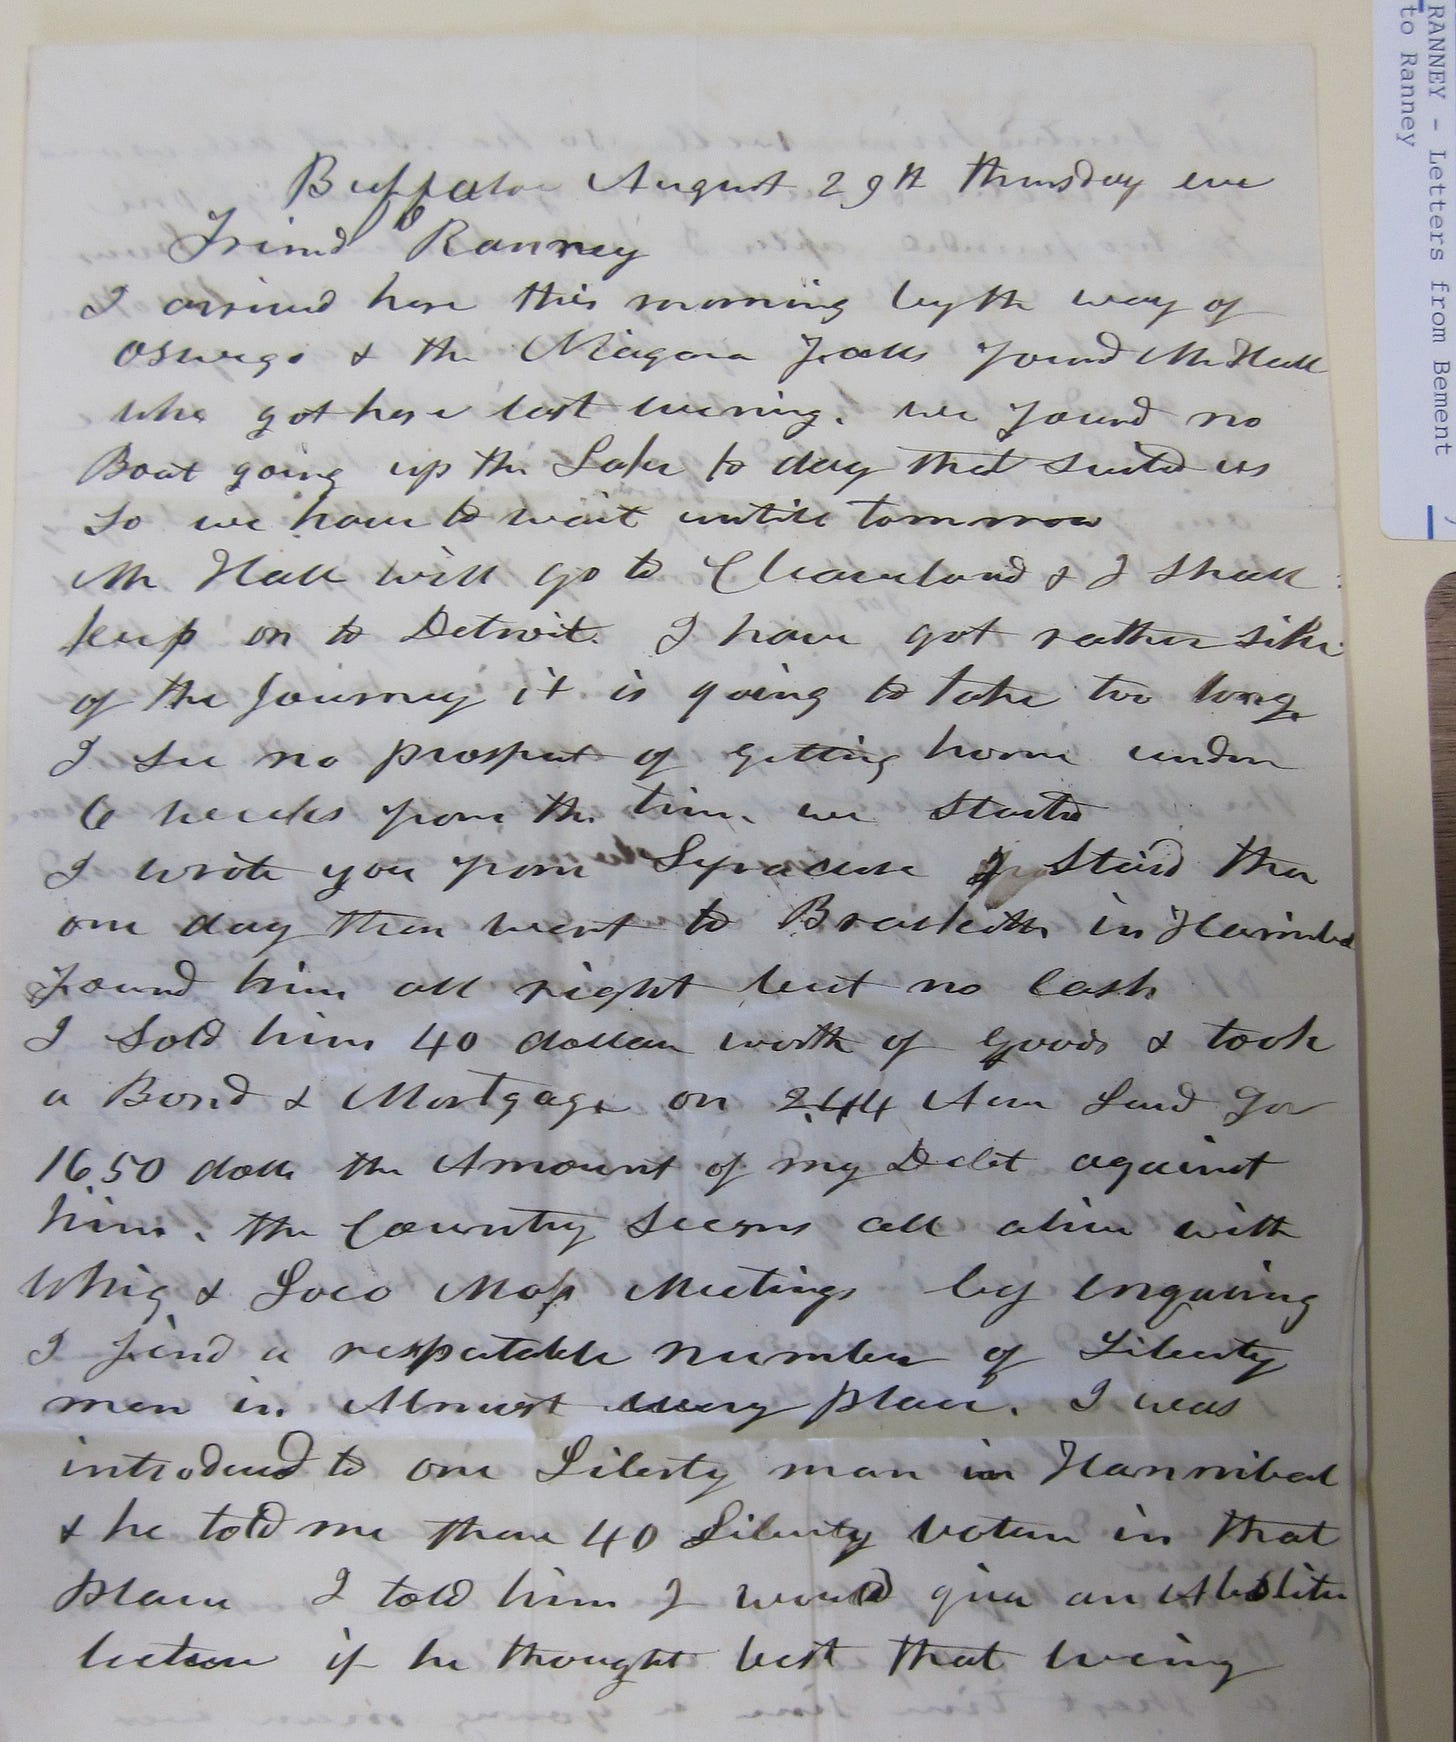 RANNEY - Letters from Bement
to Ranney
Buffalow August 29th Thursday eve
Friend Ranney
I arrived here this morning by th way of
Oswego & the Niagara Falls found Mr Hall
who got here last evening. we found no
Boat going up the Lake to day that suited us
so we have to wait untill tommrow
Mr Hall will go to Cleaveland & I shall
keep on to Detroit. I have got rather sike
of the Journey it is going to take too long
I see no prospect of getting home under
6 weeks from the time we started
I wrote you from Syracuse I staid ther
one day then went to in Hannibal
found him all right but no Cash
I sold him 40 dollar worth of goods & took
a Bond & Mortgage on 244 Acre Land for
1650 dolls the Amount of my Debt against
him. the Country seems all alive with
Whig & Loco Mass Meetings by enquiring
I find a respectable number of Liberty
men in Almost every place. I was
introduced to one Liberty man in Hannibal
& he told me there 40 Liberty voters in that
place I told him I would give an Abolition
lecture if he thought best that evening